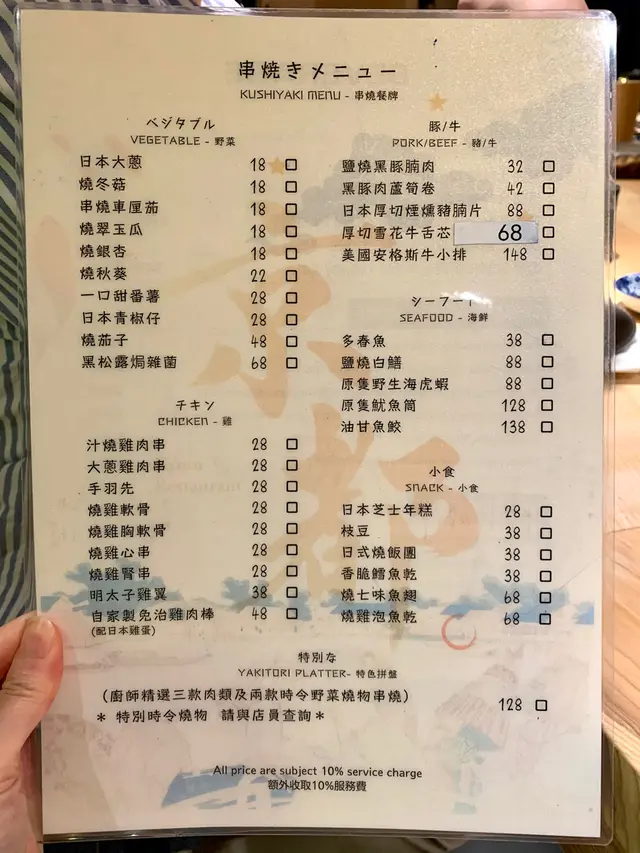 串焼きメニュー
KUSHIYAKI MENU - 串燒餐牌
ベジタブル
VEGETABLE - 野菜
日本大蔥 18
燒冬菇 18
串燒車厘茄 18
燒翠玉瓜 18
燒銀杏 18
燒秋葵 22
一口甜番薯 28
日本青椒仔 28
燒茄子 48
黑松露焗雜菌 68
チキン
CHICKEN - 雞
汁燒雞肉串 28
大蔥雞肉串 28
手羽先 28
燒雞軟骨 28
燒雞胸軟骨 28
燒雞心串 28
燒雞腎串 28
明太子雞翼 38
自家製免治雞肉棒 48
(配日本雞蛋)
豚/牛
PORK/BEEF - 豬/牛
鹽燒黑豚腩肉 32
黑豚肉蘆筍卷 42
日本厚切煙燻豬腩片 88
厚切雪花牛舌芯 68
美國安格斯牛小排 148
シーフード
SEAFOOD - 海鮮
多春魚 38
鹽燒白鱔 88
原隻野生海虎蝦 88
原隻魷魚筒 128
油甘魚鮫 138
小食
SNACK - 小食
日本芝士年糕 28
枝豆 38
日式燒飯團 38
香脆鱈魚乾 38
燒七味魚翅 68
燒雞泡魚乾 68
特別な
YAKITORI PLATTER- 特色拼盤
(廚師精選三款肉類及兩款時令野菜燒物串燒) 128
* 特別時令燒物 請與店員查詢*
All price are subject 10% service charge
額外收取10%服務費
京都